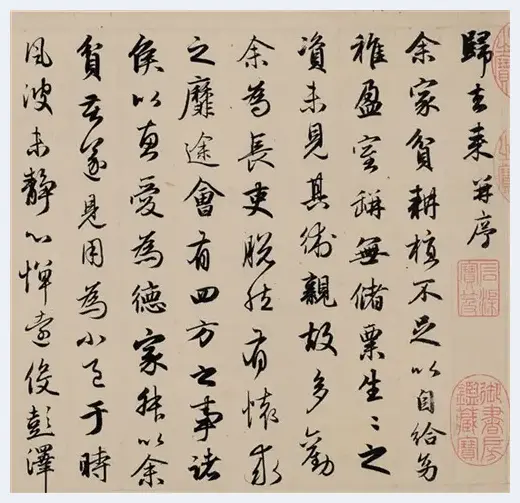 歸去來并序
余家貧耕植不足以自給幼
稚盈室缾無儲粟生〻之
資未見其術親故多勸
余為長吏脫然有懷求
之靡途會有四方之事諸
侯以惠愛為德家叔以余
貧苦遂見用為小邑于時
風波未靜心憚遠役彭澤
石渠寶笈
御書房鑑藏寶